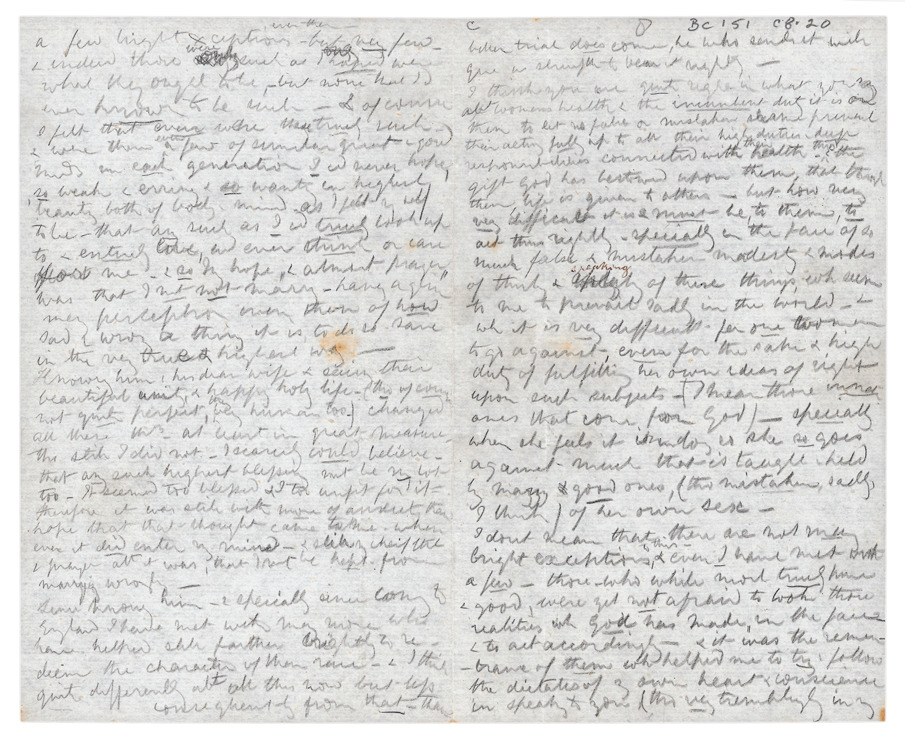 even then
a few bright exceptions - but very few -
& indeed those were such as I hoped were
what they ought to be, - but none that I'd
ever known to be such - & of course
I felt that even were there such -
& were there a few of similar great & good
minds in each generation - I co'd never hope,
so weak & erring & so wanting in highest
beauty both of body & mind as I felt myself
to be - that any such as I co'd truly look up
to & entirely love, co'd ever think or care
for me - & so my hope, & almost prayer
was that I might not marry - having a
very perception even then of how
sad & wrong a thing it is to do so save
in the very truest & highest way -
Knowing him & his dear wife & seeing their
beautiful & happy holy life - (tho' of course
not quite perfect, being human too) changed
all these tho'ts - at least in great measure -
tho still I did not - I scarcely could believe -
that any such highest blessing might be my lot
too - It seemed too blessed & I too unfit for it -
therefore it was still with more of than
hope that that thought came to me - when
ever it did enter my mind - & still my chief
prayer at it was, that I might be kept from
marrying wrongly -
Since knowing him - & especially since coming to
England I have met with many more who
have helped still farther to re-
deem the character of their race - & I think
quite differently abt all this now but
consequently from that - than
C 8 BC '51 CB.20
bitter trial does come, he who sends it will
give us strength to bear it rightly -
I think you are quite right in what you say
abt womens health & the incumbent duty it is on
them to let no false or mistaken shame prevent
their acting fully up to all their high duties & deep
responsibilities connected with health - the
gift God has bestowed upon them, that through
them, life is given to others - but how very
very difficult it is & must be, to them, to
act thus rightly - specially in the face of so
much false & mistaken modesty & modes
of thinking & speaking of these things wh seem
to me to prevail sadly in the world - &
wh it is very difficult for one woman
to go against, even for the sake & high
duty of fulfilling her own ideas of right
upon such subjects - (I mean those innate
ones that come from God) - specially
when she feels in doing so she so goes
against much that is taught & held
by many & good ones, (tho mistaken, sadly
I think) of her own sex -
I dont mean that there are not many
bright exceptions to this, & even I have met with
a few - those who while most truly pure
& good, were yet not afraid to look those
realities wh God has made, in the face
& to act accordingly - & it was the remem-
-brance of them wh helped me to try & follow
the dictates of my own heart & conscience
in speaking to you (tho very tremblingly in my